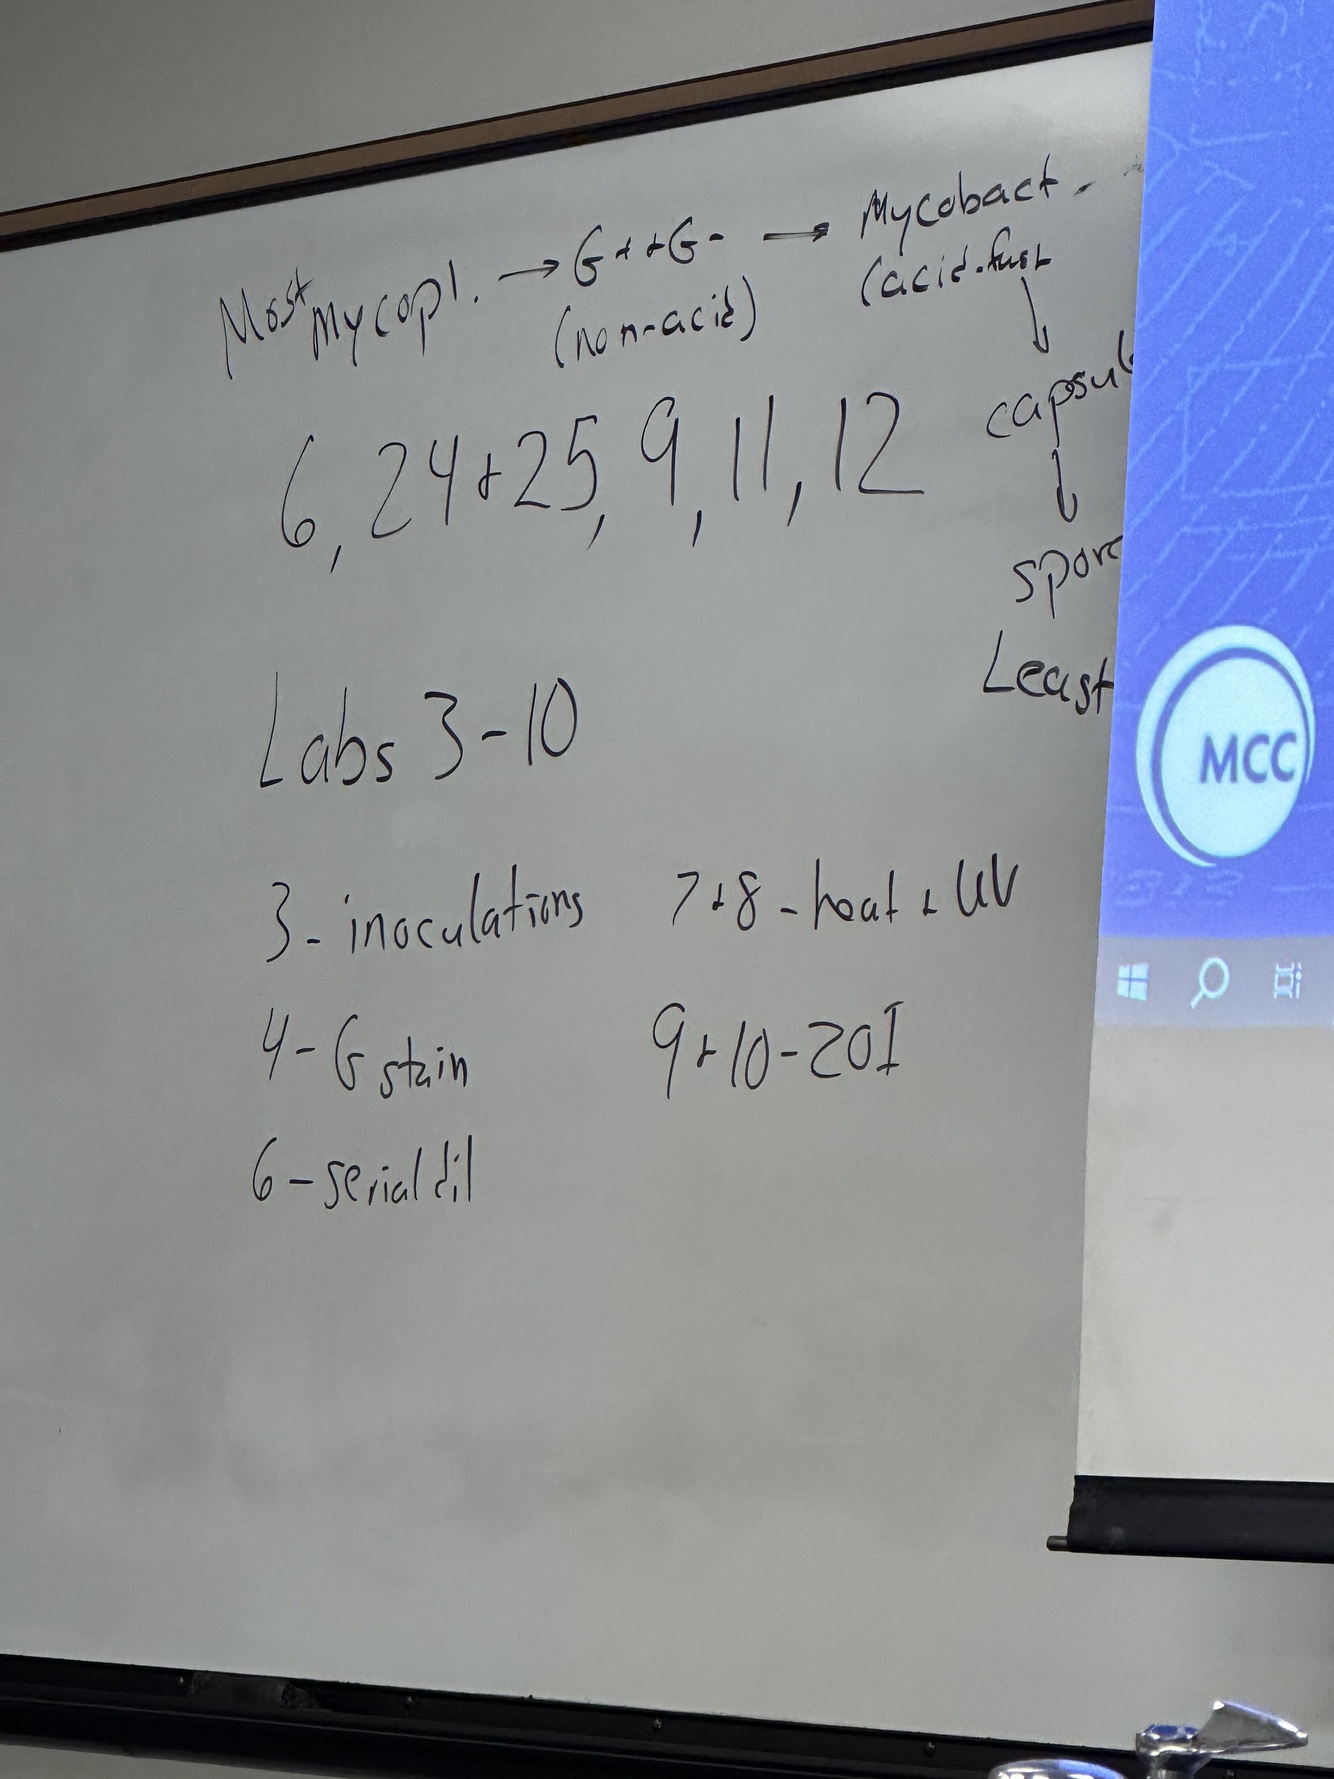 Most Mycopl. → G+ + G- → Mycobact.
(non-acid) (acid-fast
capsul
6, 24+25, 9, 11, 12
spore
Least
Labs 3-10
3- inoculations 7+8 - heat + UV
4- G stain 9+10-ZOI
6- serial dil
MCC